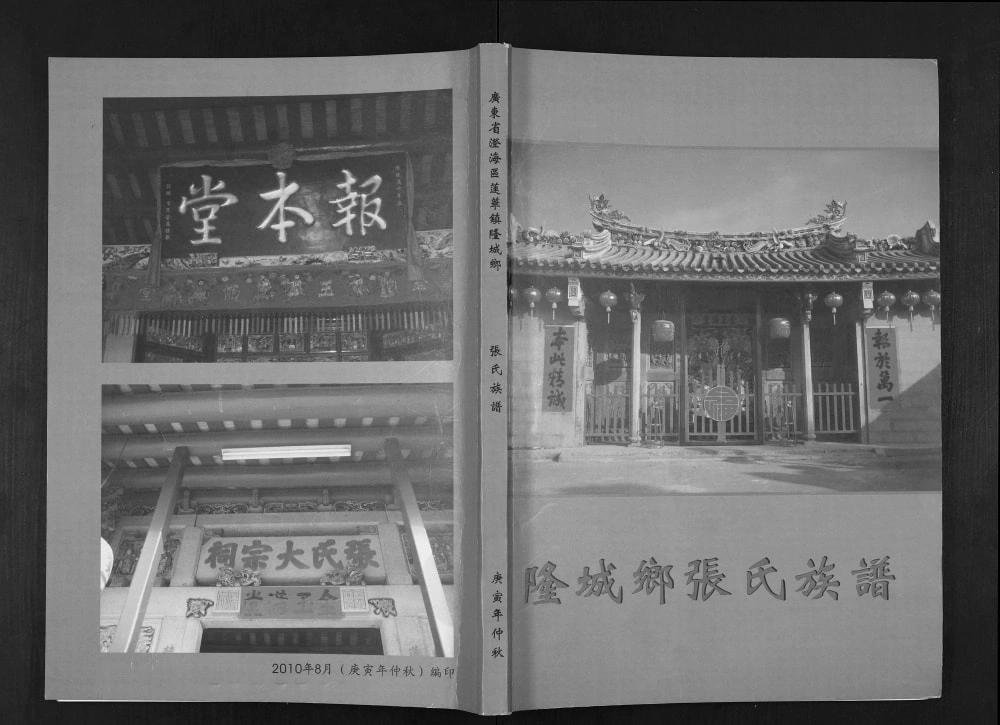 隆城鄉張氏族譜
報於萬一
本此精誠
廣東省澄海區蓮華鎮隆城鄉
張氏族譜
庚寅年仲秋
報本堂
張氏大宗祠
2010年8月（庚寅年仲秋）編印